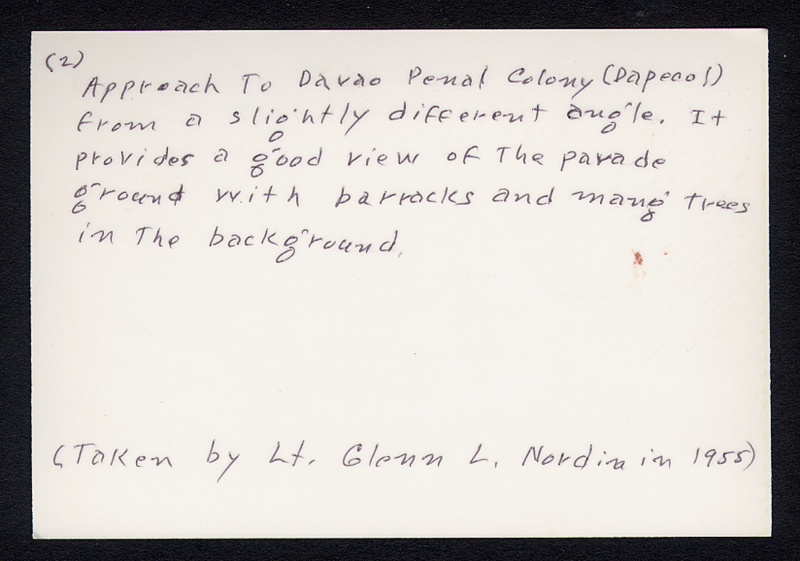 (2)
Approach To Davao Penal Colony (Dapecol)
from a slightly different angle. It
provides a good view of The parade
ground with barracks and mang trees
in The background.
(Taken by Lt. Glenn L. Nordin in 1955)